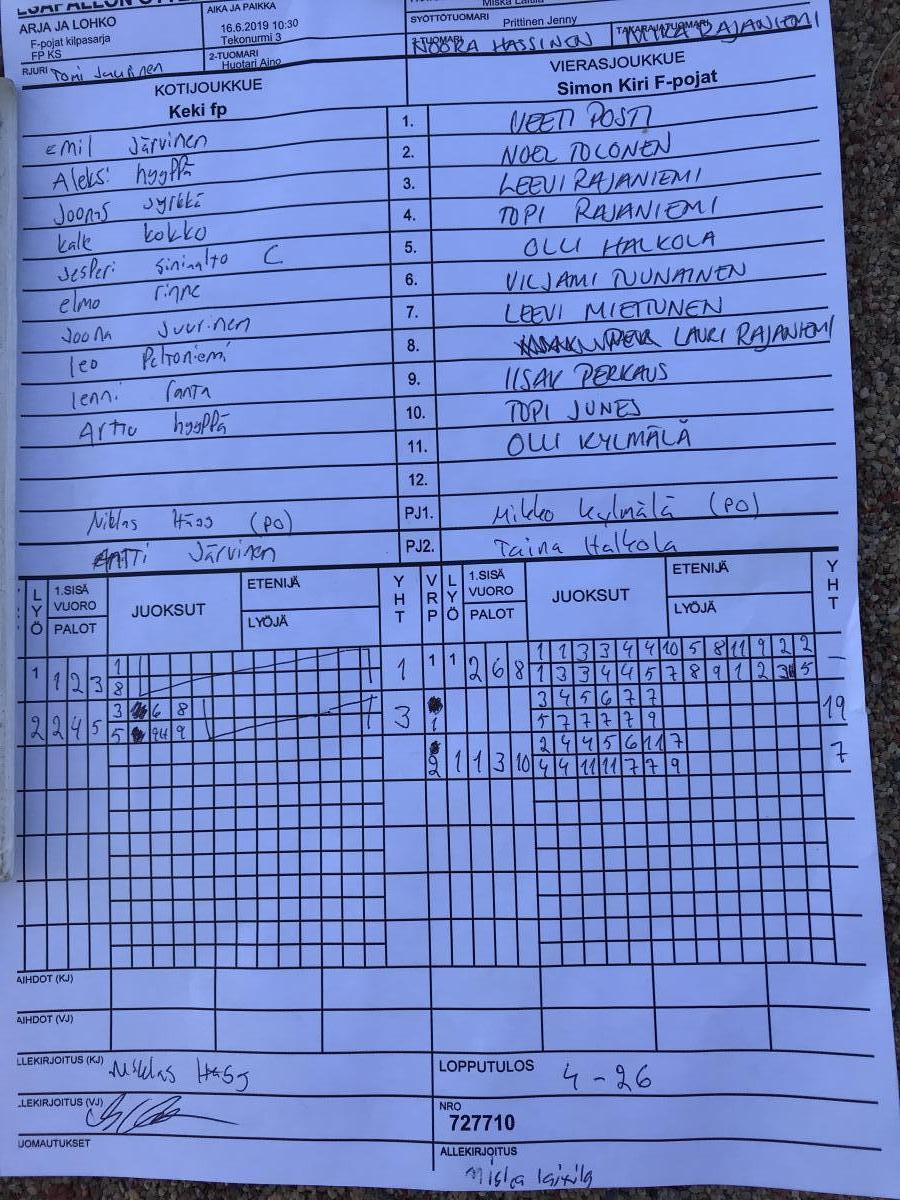 ARJA JA LOHKO
F-pojat kilpasarja
FP KS
AIKA JA PAIKKA
16.6.2019 10:30
Tekonurmi 3
2-TUOMARI
Huotari Aino
SYÖTTÖTUOMARI
Prittinen Jenny
3-TUOMARI
NOORA HASSINEN
TAKARAJATUOMARI
MIKA RAJANIEMI
RJURI
KOTIJOUKKUE
Keki fp
VIERASJOUKKUE
Simon Kiri F-pojat
Emil Järvinen 1. VEETI POSTI
Aleksi hyyppä 2. NOEL TOLONEN
Joonas Jyrkkä 3. LEEVI RAJANIEMI
kalle kokko 4. TOPI RAJANIEMI
Jesperi Siniaalto C 5. OLLI HALKOLA
elmo rinne 6. VILJAMI TUUNAINEN
Joona Juurinen 7. LEEVI MIETTUNEN
leo Peltoniemi 8. LAURI RAJANIEMI
lenni ranta 9. IISAK PERKAUS
Arttu hyyppä 10. TOPI JUNES
11. OLLI KYLMÄLÄ
12.
Niklas Hägg (PO) PJ1. Mikko Kylmälä (PO)
ANTTI Järvinen PJ2. Taina Halkola
LYÖ 1.SISÄ VUORO PALOT JUOKSUT ETENIJÄ LYÖJÄ YHT VRP LYÖ 1.SISÄ VUORO PALOT JUOKSUT ETENIJÄ LYÖJÄ YHT
1 1 2 3 1 1 1 1 2 6 8 1 1 3 3 4 4 10 5 8 11 9 2 2 –
8 1 3 3 4 4 5 7 8 9 1 2 5
2 2 4 5 3 6 8 3 3 4 5 6 7 7 19
5 9 1 5 7 7 7 7 9
2 1 1 3 10 2 4 4 5 6 11 7 7
4 4 11 11 7 7 9
AIHDOT (KJ)
AIHDOT (VJ)
LLEKIRJOITUS (KJ) Niklas Hägg
LOPPUTULOS 4 - 26
LLEKIRJOITUS (VJ)
NRO
727710
UOMAUTUKSET
ALLEKIRJOITUS